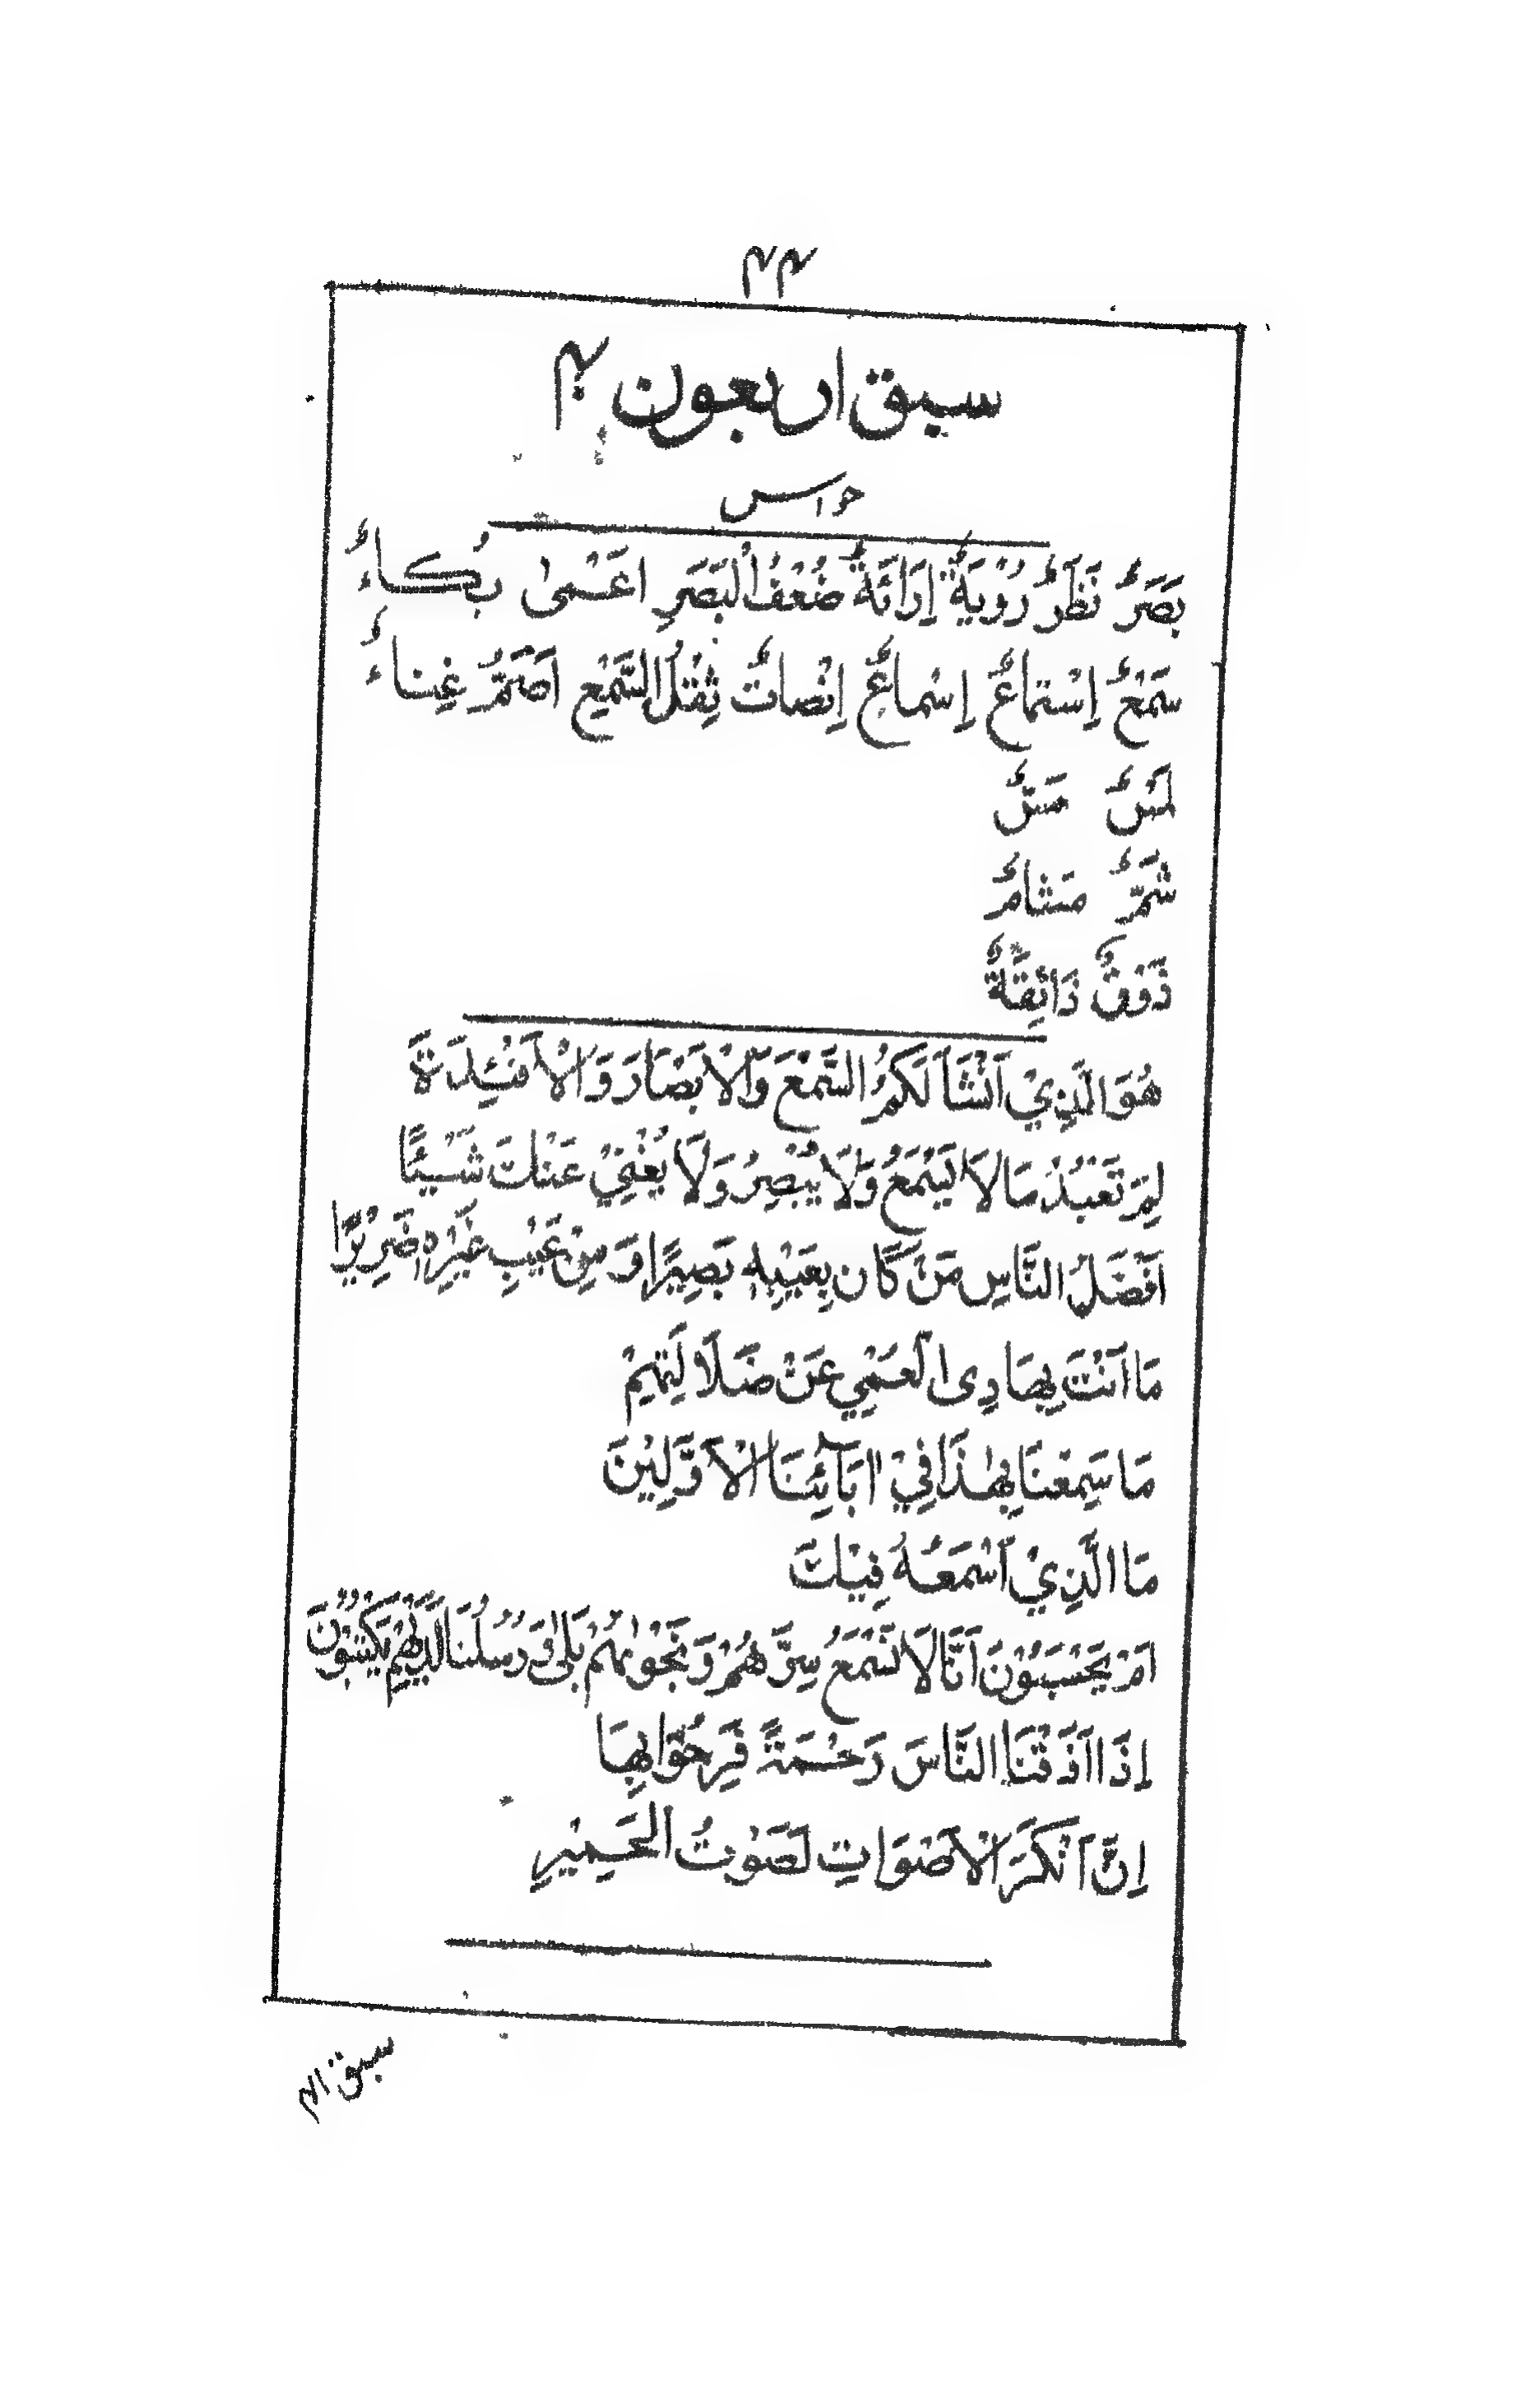 ۴۴
سبق اربعون ۴۰
حواس
بَصَرٌ نَظَرٌ رُوْيَةٌ اِرَائَةٌ ضُعْفُ الْبَصَرِ اَعْمٰى بُكَاءٌ
سَمْعٌ اِسْتِمَاعٌ اِسْمَاعٌ اِنْصَاتٌ ثِقْلُ السَّمْعِ اَصَمُّ غِنَاءٌ
لَمْسٌ مَسٌّ
شَمٌّ مَشَامٌ
ذَوْقٌ ذَائِقَةٌ
هُوَ الَّذِيْ اَنْشَاَ لَكُمُ السَّمْعَ وَالْاَبْصَارَ وَالْاَفْئِدَةَ
لِمَ تَعْبُدُ مَا لَا يَسْمَعُ وَلَا يُبْصِرُ وَلَا يُغْنِيْ عَنْكَ شَيْئًا
اَفْضَلُ النَّاسِ مَنْ كَانَ بِعَيْبِهٖ بَصِيْرًا وَ مِنْ عَيْبِ غَيْرِهٖ ضَرِيْرًا
مَا اَنْتَ بِهَادِى الْعُمْيِ عَنْ ضَلَالَتِهِمْ
مَا سَمِعْنَا بِهٰذَا فِيْ اٰبَآئِنَا الْاَوَّلِيْنَ
مَا الَّذِيْ اَسْمَعُهُ فِيْكَ
اَمْ يَحْسَبُوْنَ اَنَّا لَا نَسْمَعُ سِرَّهُمْ وَ نَجْوٰىهُمْ بَلٰى وَ رُسُلُنَا لَدَيْهِمْ يَكْتُبُوْنَ
اِذَا اَذَقْنَا النَّاسَ رَحْمَةً فَرِحُوْا بِهَا
اِنَّ اَنْكَرَ الْاَصْوَاتِ لَصَوْتُ الْحَمِيْرِ
سبق ۴۱